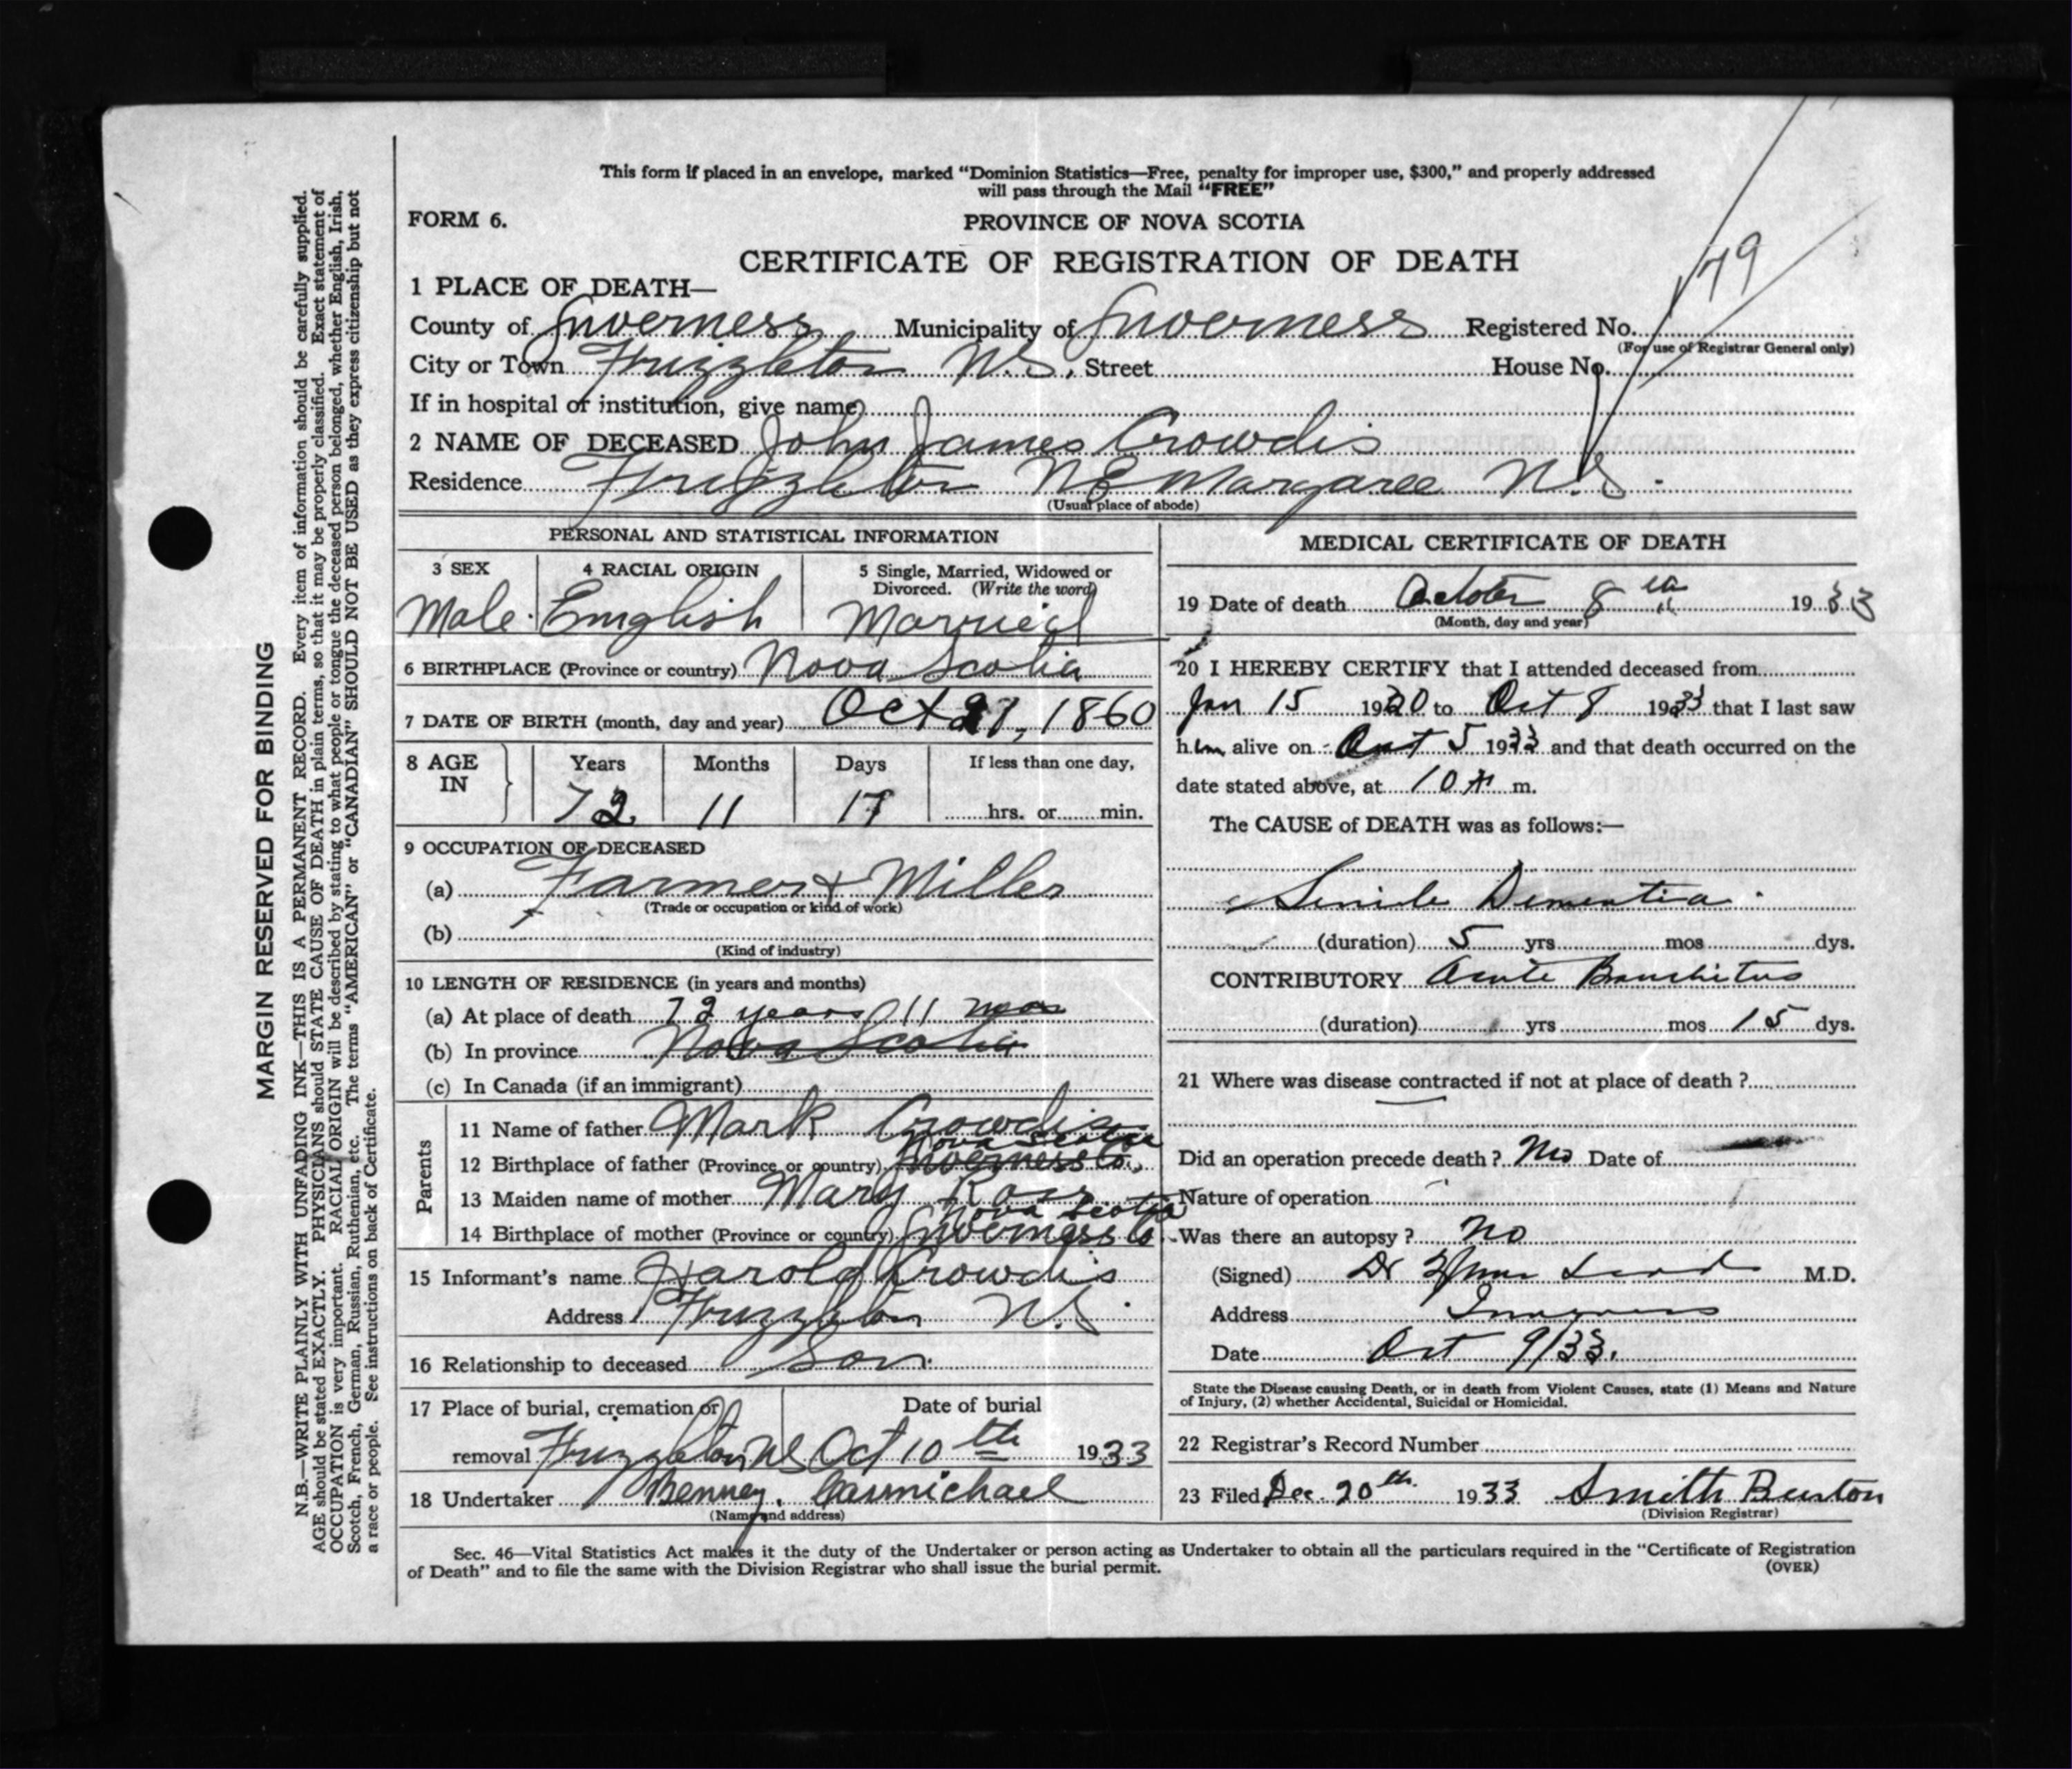 This form if placed in an envelope, marked "Dominion Statistics—Free, penalty for improper use, $300," and properly addressed
will pass through the Mail "FREE"
FORM 6.
PROVINCE OF NOVA SCOTIA
CERTIFICATE OF REGISTRATION OF DEATH
179
1 PLACE OF DEATH—
County of Inverness Municipality of Inverness Registered No.
(For use of Registrar General only)
City or Town Frizzleton N.S. Street House No.
If in hospital or institution, give name
2 NAME OF DECEASED John James Crowdis
Residence Frizzleton NE Margaree N.S.
(Usual place of abode)
PERSONAL AND STATISTICAL INFORMATION
3 SEX 4 RACIAL ORIGIN 5 Single, Married, Widowed or
Divorced. (Write the word)
Male. English Married
6 BIRTHPLACE (Province or country) Nova Scotia
7 DATE OF BIRTH (month, day and year) Oct 21, 1860
8 AGE IN Years Months Days If less than one day,
72 11 17 hrs. or min.
9 OCCUPATION OF DECEASED
(a) Farmer & Miller
(Trade or occupation or kind of work)
(b)
(Kind of industry)
10 LENGTH OF RESIDENCE (in years and months)
(a) At place of death 72 years 11 mos
(b) In province Nova Scotia
(c) In Canada (if an immigrant)
Parents
11 Name of father Mark Crowdis
Nova Scotia
12 Birthplace of father (Province or country) Inverness Co.
13 Maiden name of mother Mary Ross
Nova Scotia
14 Birthplace of mother (Province or country) Inverness Co
15 Informant's name Harold Crowdis
Address Frizzleton N.S.
16 Relationship to deceased Son.
17 Place of burial, cremation or Date of burial
removal Frizzleton NS Oct 10th 1933
18 Undertaker Carmichael
(Name and address)
MEDICAL CERTIFICATE OF DEATH
19 Date of death October 8th 1933
(Month, day and year)
20 I HEREBY CERTIFY that I attended deceased from
Jan 15 to Oct 8 1933 that I last saw
him alive on Oct 5 1933 and that death occurred on the
date stated above, at 10 A m.
The CAUSE of DEATH was as follows:—
Senile Dementia.
(duration) 5 yrs mos dys.
CONTRIBUTORY Acute Bronchitus
(duration) yrs mos 15 dys.
21 Where was disease contracted if not at place of death ?
Did an operation precede death ? No Date of
Nature of operation
Was there an autopsy ? No
(Signed) Dr M.D.
Address Inverness
Date Oct 9/33.
State the Disease causing Death, or in death from Violent Causes, state (1) Means and Nature
of Injury, (2) whether Accidental, Suicidal or Homicidal.
22 Registrar's Record Number
23 Filed Dec. 20th 1933 Smith Burton
(Division Registrar)
Sec. 46—Vital Statistics Act makes it the duty of the Undertaker or person acting as Undertaker to obtain all the particulars required in the "Certificate of Registration
of Death" and to file the same with the Division Registrar who shall issue the burial permit.
(OVER)
MARGIN RESERVED FOR BINDING
N.B.—WRITE PLAINLY WITH UNFADING INK—THIS IS A PERMANENT RECORD. Every item of information should be carefully supplied.
AGE should be stated EXACTLY. PHYSICIANS should STATE CAUSE OF DEATH in plain terms, so that it may be properly classified. Exact statement of
OCCUPATION is very important. RACIAL ORIGIN will be described by stating to what people or tongue the deceased person belonged, whether English, Irish,
Scotch, French, German, Russian, Ruthenian, etc. The terms "AMERICAN" or "CANADIAN" SHOULD NOT BE USED as they express citizenship but not
a race or people. See instructions on back of Certificate.